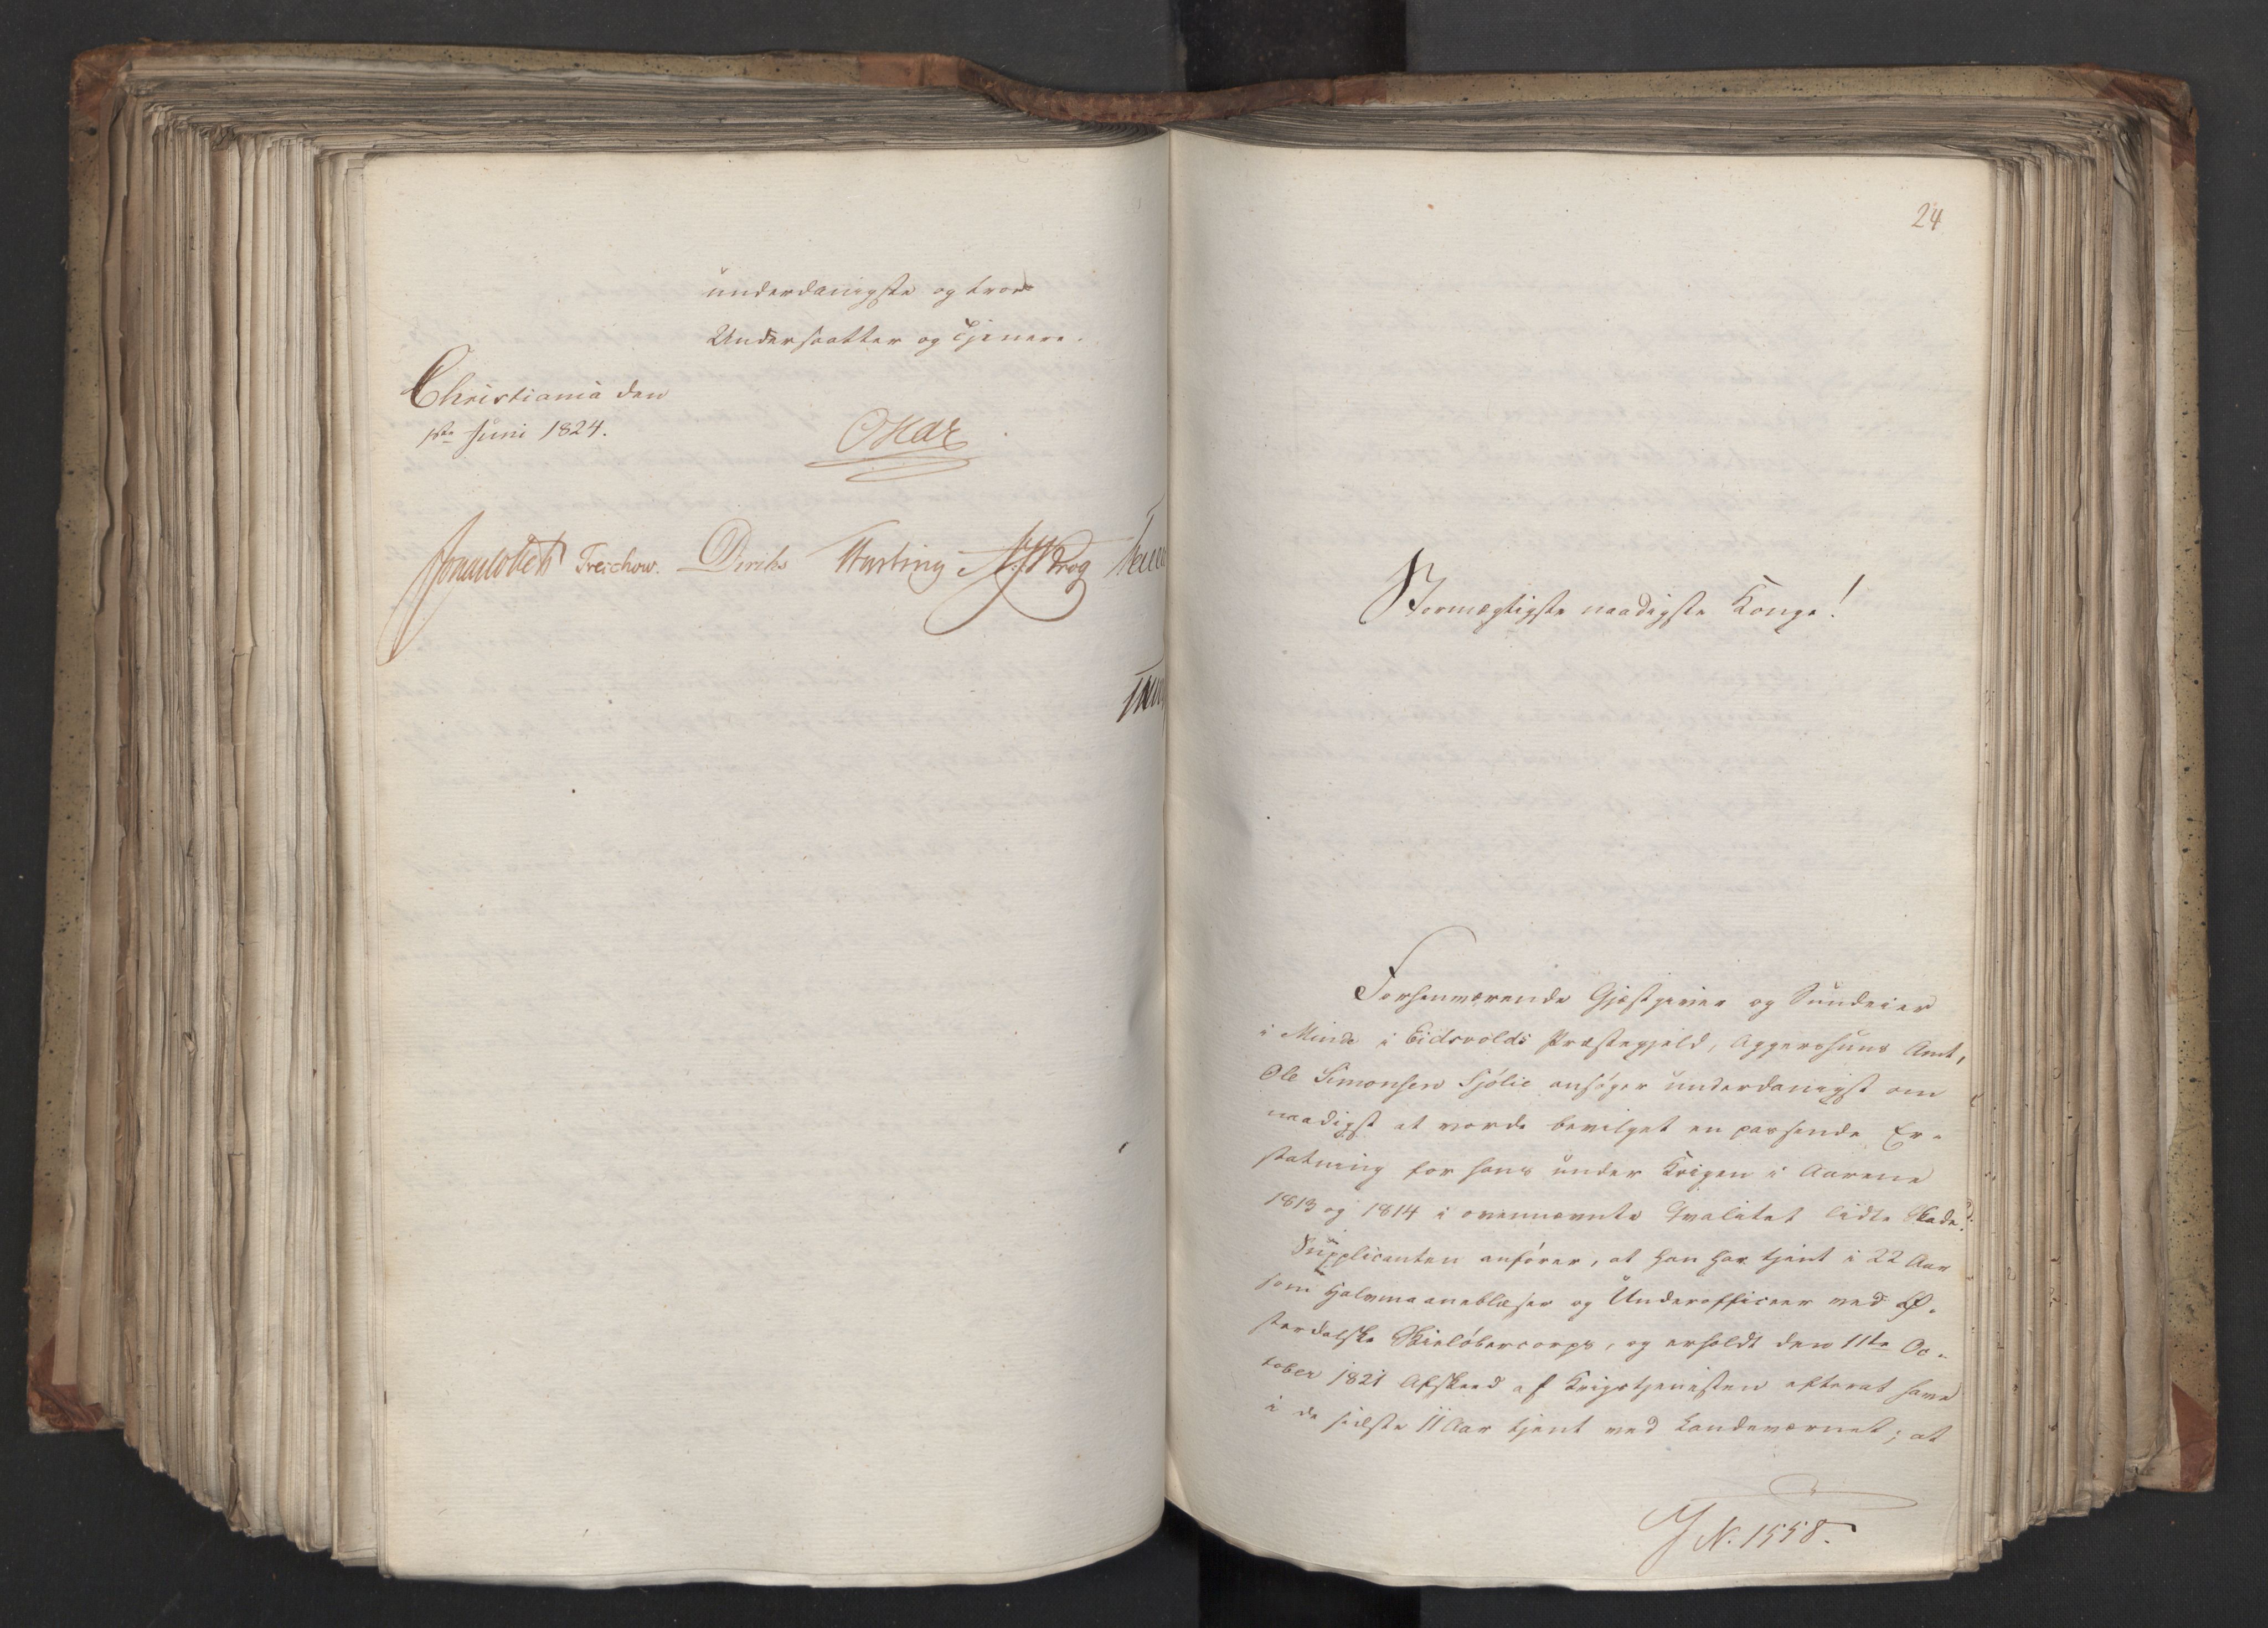 underdanigste og troe
Undersaatter og Tjenere.
Christiania den
1ste Juni 1824.
Oscar
Treschow. Diriks H. J. Krog
24
Stormægtigste naadigste Konge!
Forhenværende Gjæstgiver og Sundeier
i Minde i Eidsvolds Præstegjeld, Aggershuus Amt,
Ole Simonsen Sjølie ansøger underdanigst om
naadigst at vorde bevilget en passende Er-
statning for hans under Krigen i Aarene
1813 og 1814 i ovennævnte Qvalitet lidte Skade.
Supplicanten anfører, at han har tjent i 22 Aar
som Halvmaaneblæser og Underofficeer ved Ø-
sterdalske Skieløbercorps, og erholdt den 11te Oc-
tober 1821 Afskeed af Krigstjenesten efterat have
i de sidste 11 Aar tjent ved Landeværnet; at
J N. 1558.